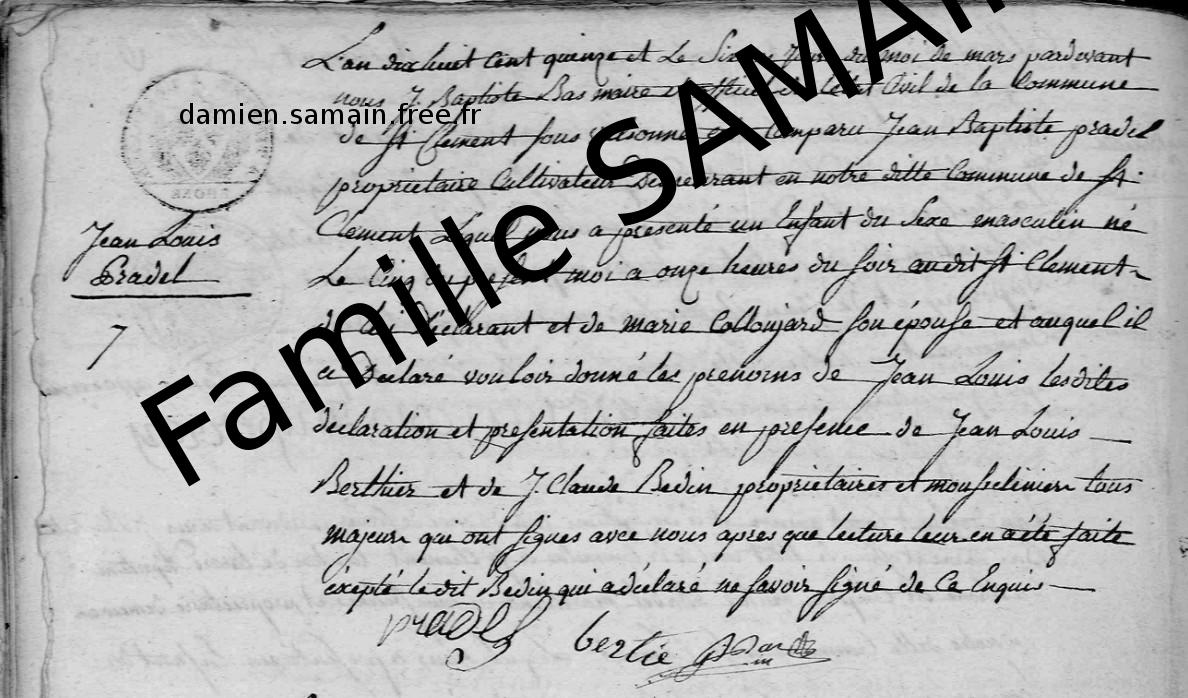 Famille SAMAIN
damien.samain.free.fr
RHONE
Jean Louis
Pradel
7
L'an dix huit cent quinze et Le Six du moi de mars pardevant
nous J. Baptiste Bas maire et de Letat Civil de la Commune
de St Clement sous comparu Jean Baptiste pradel
proprietaire Cultivateur Demeurant en notre ditte Commune de St
Clement Lequel nous a presenté un Enfant du Sexe masculin né
Le Cinq du present moi a onze heures du soir audit St Clement
de lui Déclarant et de marie Colloujard son épouse et auquel il
a Déclaré vouloir donné les prenoms de Jean Louis lesdites
déclaration et presentation faites en presence de Jean Louis
Berthier et de J. Claude Bedin proprietaires et mousselinier tous
majeur qui ont signes avec nous apres que lecture leur en a été faite
éxepté le dit Bedin qui a déclaré ne savoir signé de Ce Enquis
pradel bertié